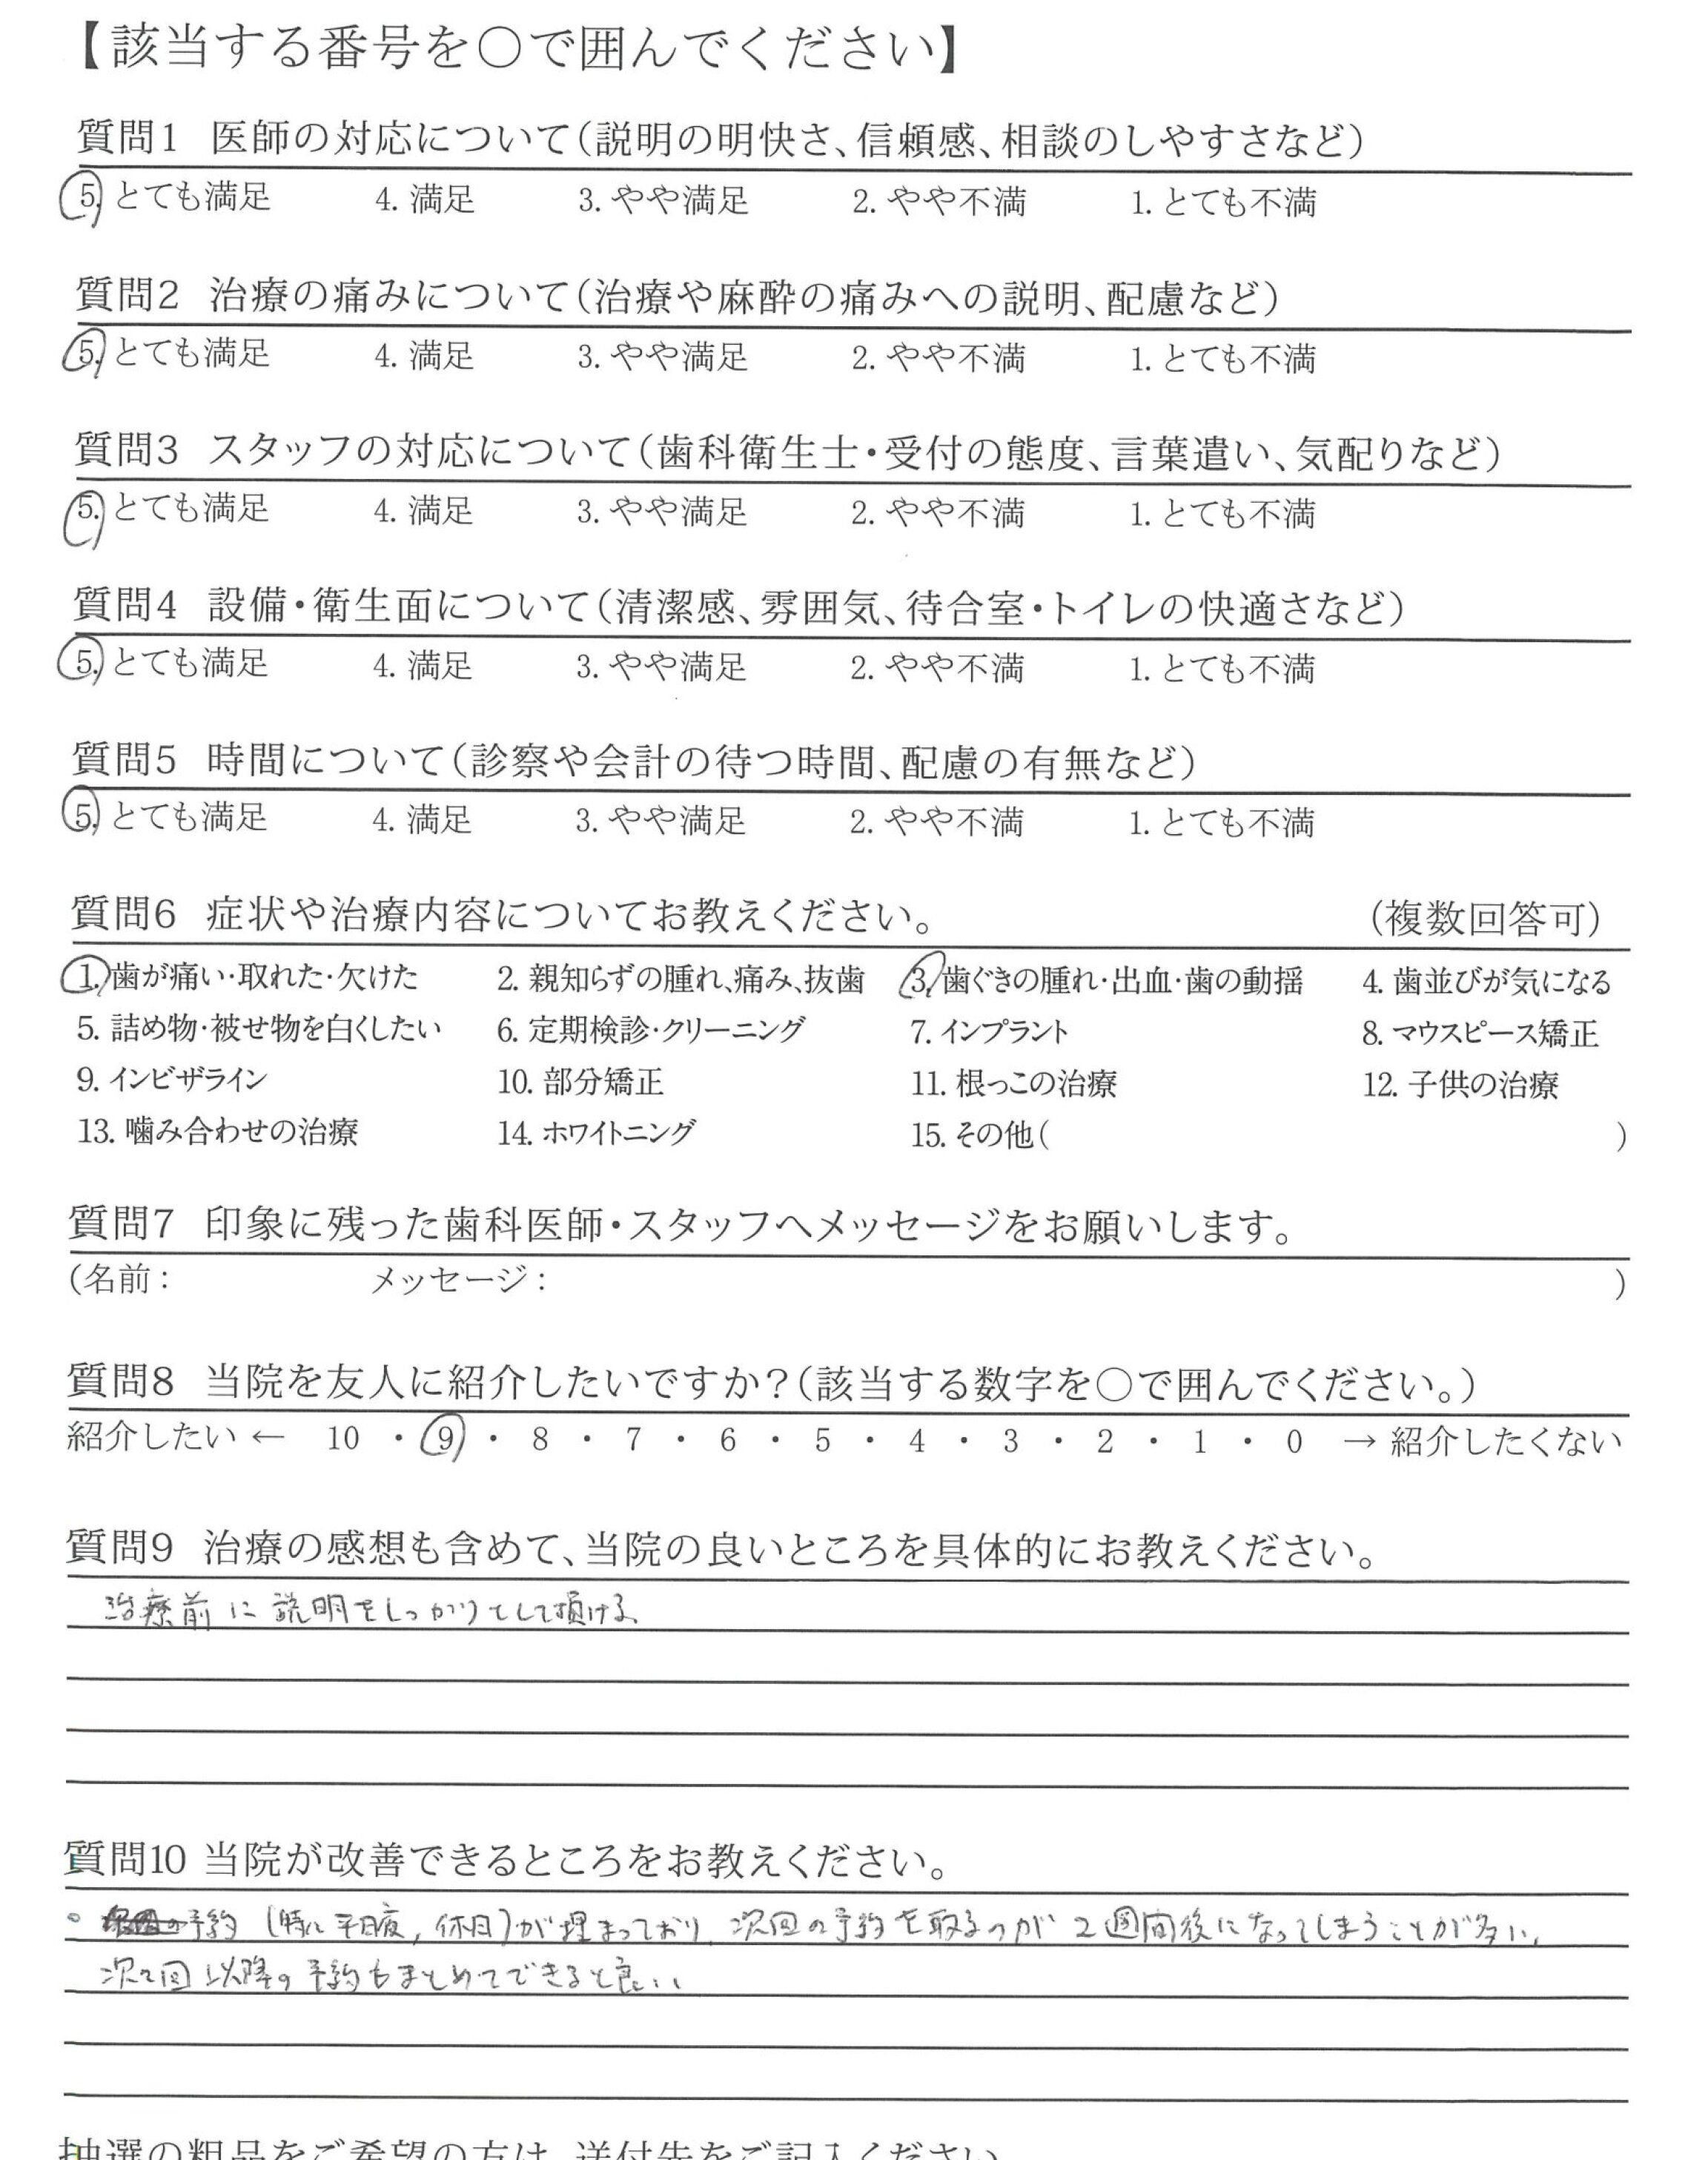 【該当する番号を○で囲んでください】
質問1 医師の対応について(説明の明快さ、信頼感、相談のしやすさなど)
5. とても満足 4. 満足 3. やや満足 2. やや不満 1. とても不満
質問2 治療の痛みについて(治療や麻酔の痛みへの説明、配慮など)
5. とても満足 4. 満足 3. やや満足 2. やや不満 1. とても不満
質問3 スタッフの対応について(歯科衛生士・受付の態度、言葉遣い、気配りなど)
5. とても満足 4. 満足 3. やや満足 2. やや不満 1. とても不満
質問4 設備・衛生面について(清潔感、雰囲気、待合室・トイレの快適さなど)
5. とても満足 4. 満足 3. やや満足 2. やや不満 1. とても不満
質問5 時間について(診察や会計の待つ時間、配慮の有無など)
5. とても満足 4. 満足 3. やや満足 2. やや不満 1. とても不満
質問6 症状や治療内容についてお教えください。 (複数回答可)
1. 歯が痛い・取れた・欠けた 2. 親知らずの腫れ、痛み、抜歯 3. 歯ぐきの腫れ・出血・歯の動揺 4. 歯並びが気になる
5. 詰め物・被せ物を白くしたい 6. 定期検診・クリーニング 7. インプラント 8. マウスピース矯正
9. インビザライン 10. 部分矯正 11. 根っこの治療 12. 子供の治療
13. 噛み合わせの治療 14. ホワイトニング 15. その他( )
質問7 印象に残った歯科医師・スタッフへメッセージをお願いします。
(名前: メッセージ: )
質問8 当院を友人に紹介したいですか?(該当する数字を○で囲んでください。)
紹介したい ← 10 ・ 9 ・ 8 ・ 7 ・ 6 ・ 5 ・ 4 ・ 3 ・ 2 ・ 1 ・ 0 → 紹介したくない
質問9 治療の感想も含めて、当院の良いところを具体的にお教えください。
治療前に説明をしっかりとして頂ける。
質問10 当院が改善できるところをお教えください。
。予約(特に平日夜, 休日)が埋まっており、次回の予約を取るのが2週間後になってしまうことが多い。
次々回以降の予約もまとめてできると良い。
抽選の粗品をご希望の方は、送付先をご記入ください。